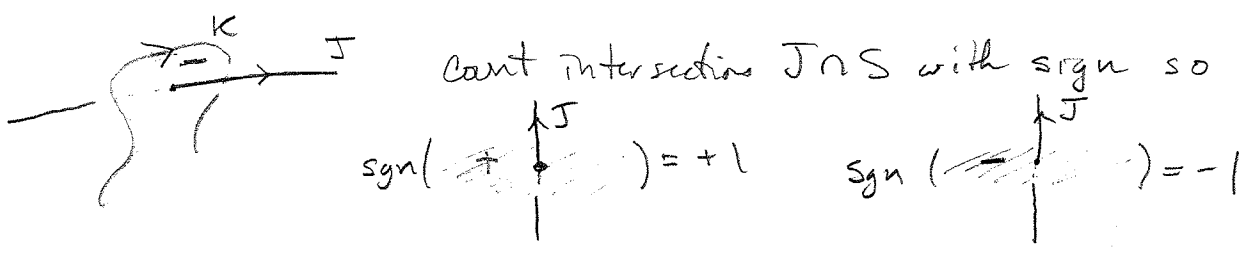 K
J
count intersections J∩S with sign so
J
J
sgn( + ) = +1
sgn ( - ) = -1